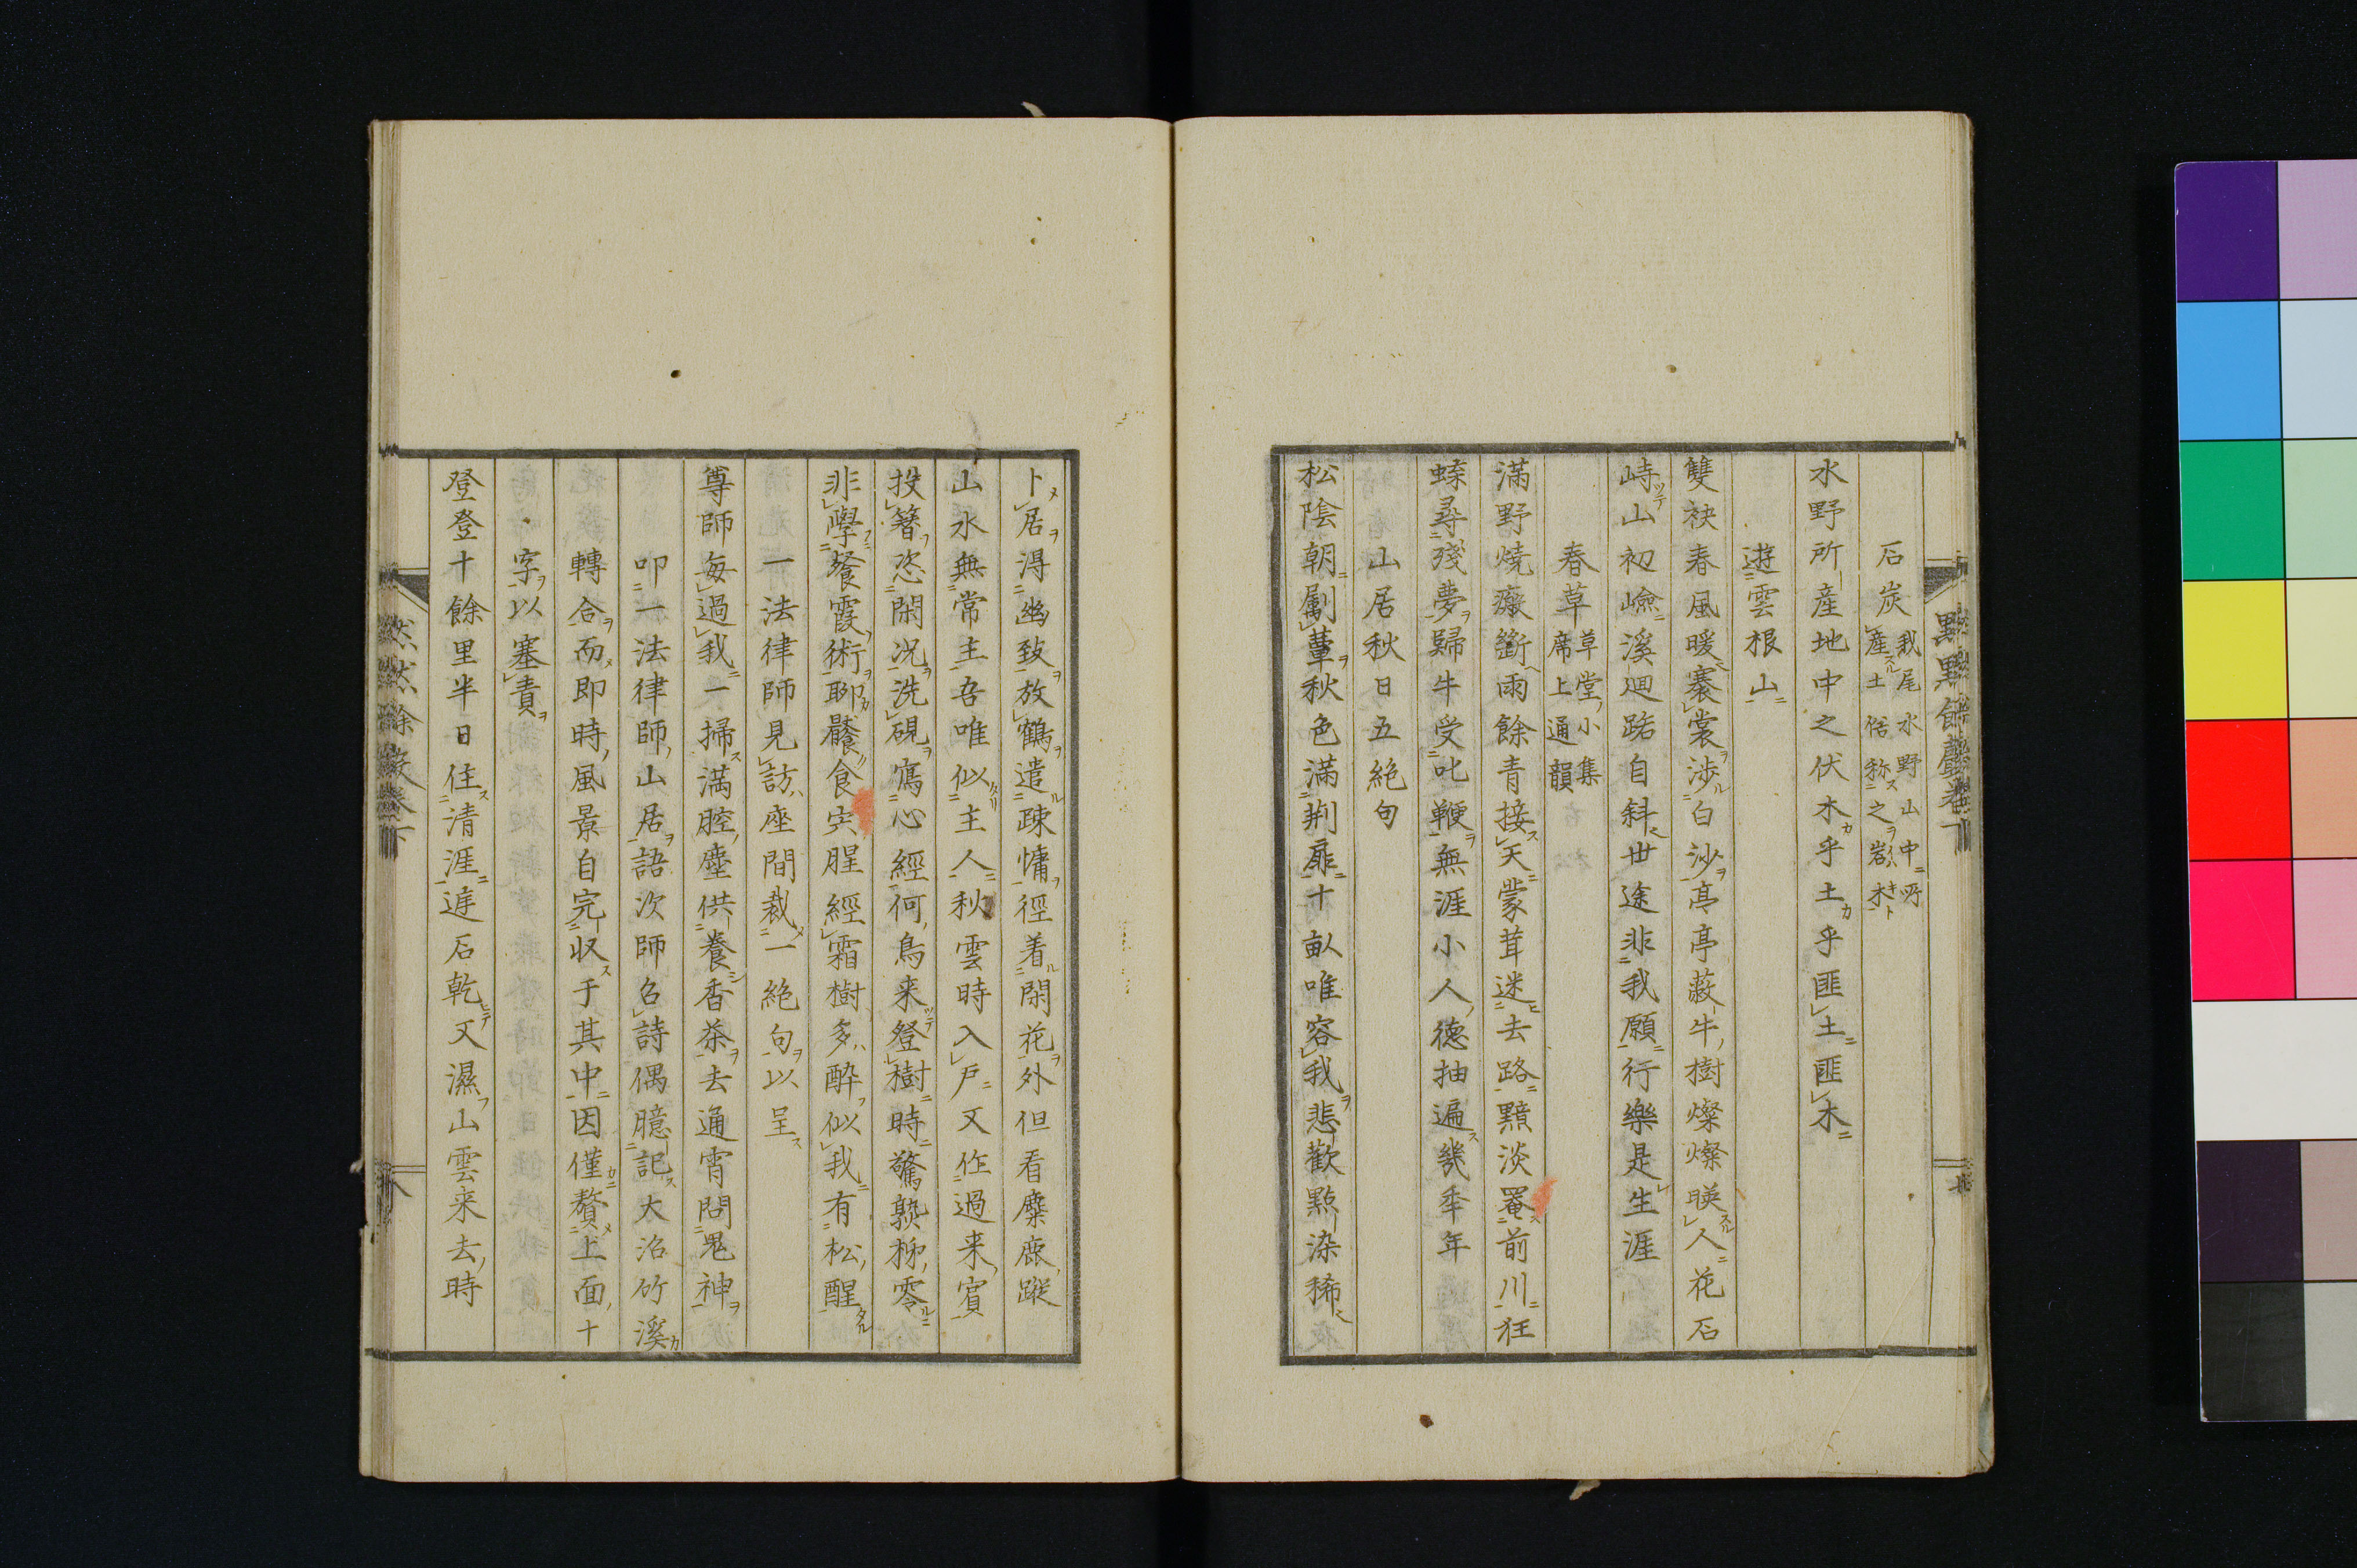 石炭 我尾水野山中所産土俗称之岩木
水野所産地中之伏木乎土乎匪土匪木
遊雲根山
雙袂春風暖褰裳渉白沙亭亭蔽牛樹燦燦暎人花石
峙山初嶮溪廻路自斜世途非我願行樂是生涯
春草 草堂小集席上通韻
滿野燒痕斷雨餘青接天蒙茸迷去路黯淡罨前川狂
蛺尋殘夢歸牛受叱鞭無涯小人德抽遍幾年年
山居秋日五絶句
松陰朝劚蕈秋色滿荆扉十畝唯容我悲歡點染稀
卜居淂幽致放鶴遣疎慵徑着閑花外但看麋鹿蹤
山水無常主吾唯似主人秋雲時入戸又作過来賓
投簪恣閑况洗硯寫心經何鳥来登樹時驚熟柳零
非學餐霞術聊饜食宍腥經霜樹多酔似我有松醒
一法律師見訪座間裁一絶句以呈
尊師每過我一掃滿腔塵供養香茶去通宵問鬼神
叩一法律師山居語次師召詩偶臆記大沼竹溪
轉合而即時風景自完収于其中因僅贅上面十
字以塞責
登登十餘里半日住清涯遠石乾又濕山雲来去時
默默餘聲卷下
八